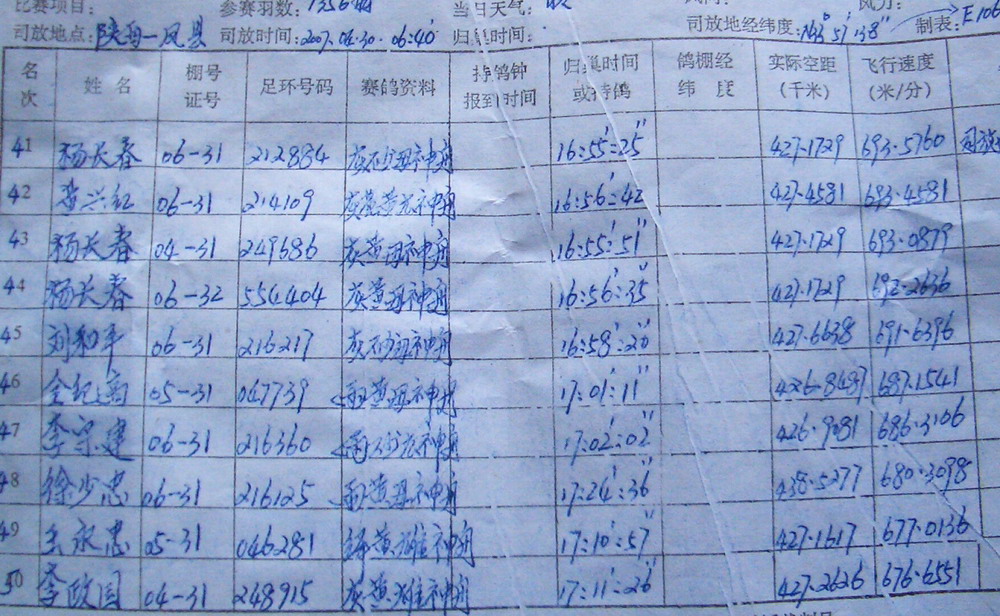 比赛项目: 参赛羽数: 当日天气: 风力:
司放地点: 陕西—凤县 司放时间: 2007.04.30.06:40' 归巢时间: 司放地经纬度: 制表:
名次 姓名 棚号证号 足环号码 赛鸽资料 持鸽钟报到时间 归巢时间或持鸽 鸽棚经纬度 实际空距(千米) 飞行速度(米/分)
41 杨长春 06-31 212884 16:55':25" 427.1729 693.5760
42 李兴红 06-31 214109 16:56':42 427.4581 693.4581
43 杨长春 04-31 249686 灰黄母神舟 16:55':51" 427.1729 693.0879
44 杨长春 06-32 554404 灰黄母神舟 16:56':35" 427.1729 692.2636
45 刘和平 06-31 216217 16:58':20" 427.6638 691.6396
46 05-31 047739 雨黄母神舟 17:01':11" 426.8487 687.1541
47 李宗建 06-31 216360 17:02':02" 426.9081 686.3106
48 徐少忠 06-31 216125 雨黄母神舟 17:24':36" 438.5277 680.3098
49 王永忠 05-31 046281 绛黄雄神舟 17:10':57" 427.1617 677.0136
50 李政国 04-31 248915 灰黄雄神舟 17:11':26" 427.2626 676.6551